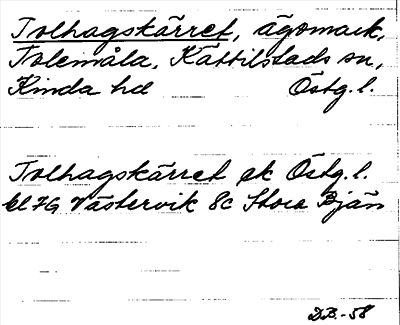 Tolhagskärret, ägomark,
Tolemåla, Kättilstads sn,
Kinda hd Östg. l.
Tolhagskärret ek Östg. l.
bl 7G Västervik 8c Stora Bjän
D.B. -58